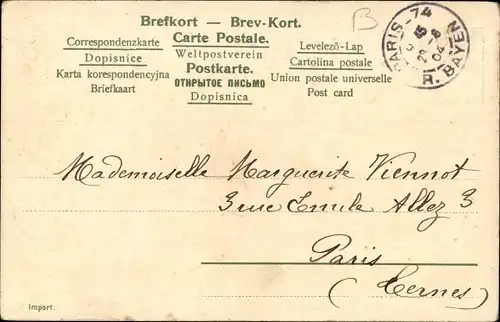 Brefkort — Brev-Kort.
Correspondenzkarte Carte Postale. Levelező-Lap
Dopisnice Weltpostverein Cartolina postale
Karta korespondencyjna Postkarte. Union postale universelle
Briefkaart ОТКРЫТОЕ ПИСЬМО Post card
Dopisnica
B
PARIS-74
R. BAYEN
04
Mademoiselle Marguerite Viennot
3 rue Emile Allez 3
Paris
(Ternes)
Import.